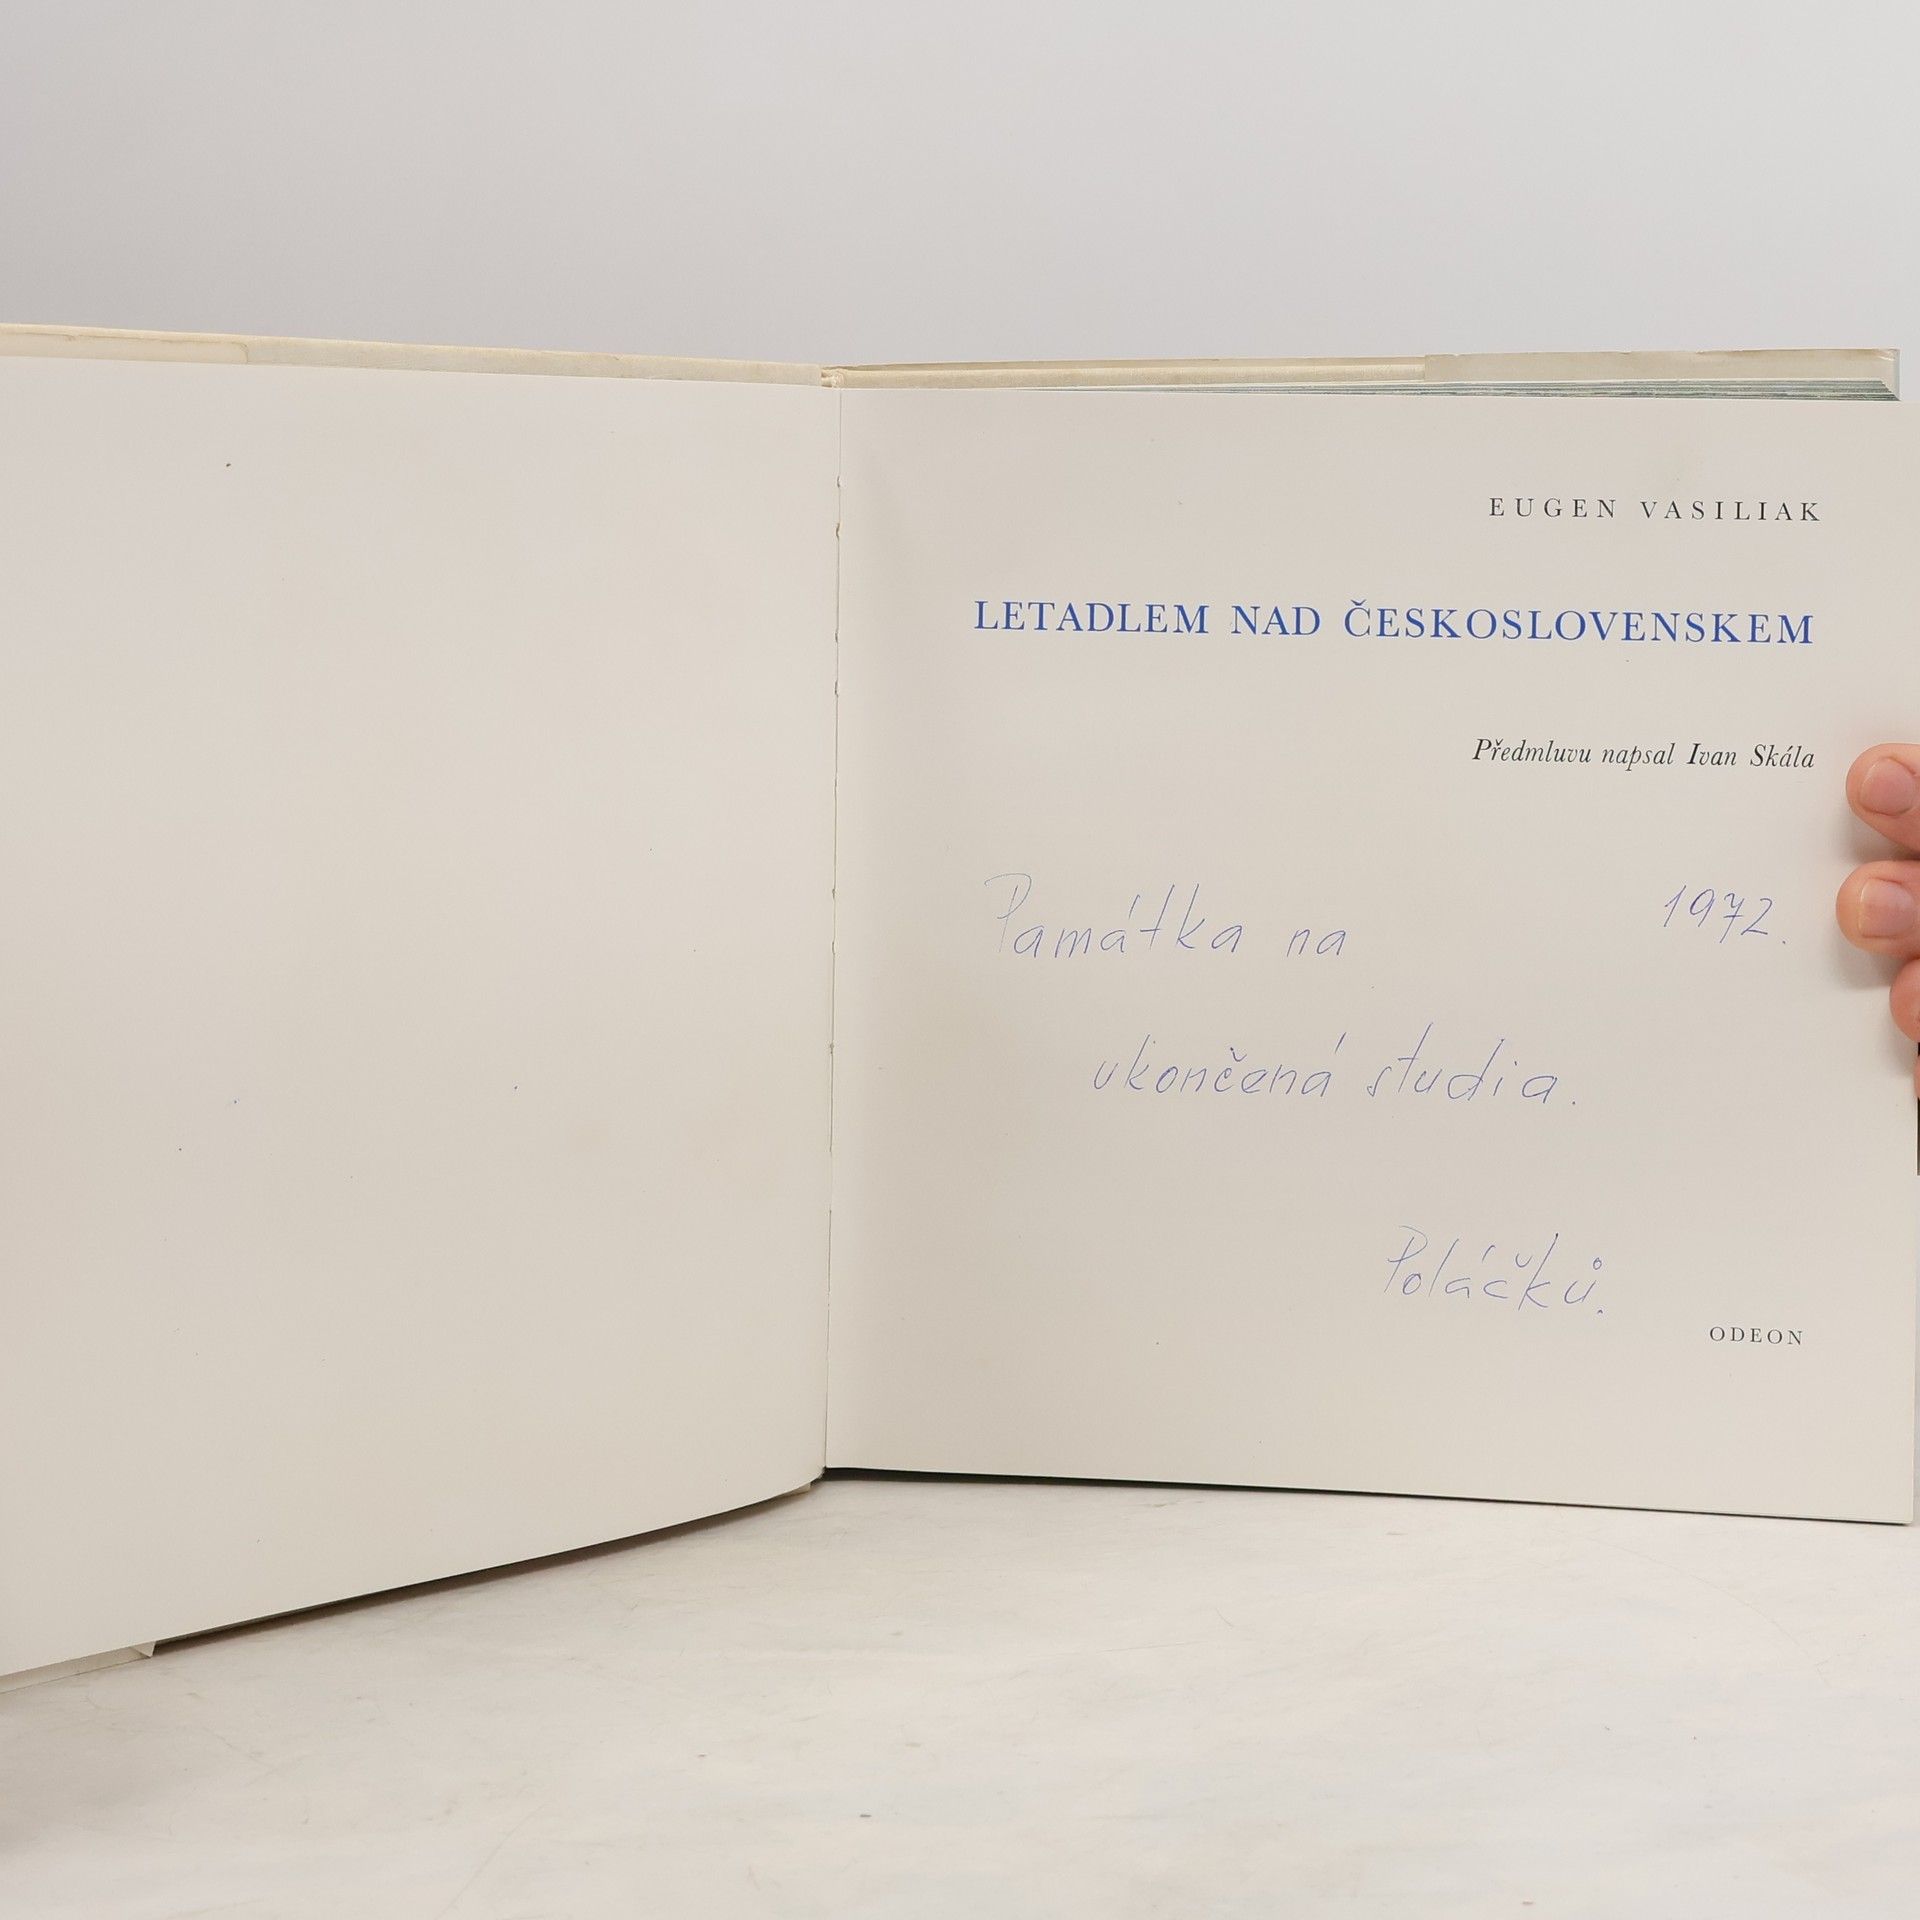 EUGEN VASILIAK
LETADLEM NAD ČESKOSLOVENSKEM
Předmluvu napsal Ivan Skála
Památka na 1972.
ukončená studia.
Poláčků.
ODEON